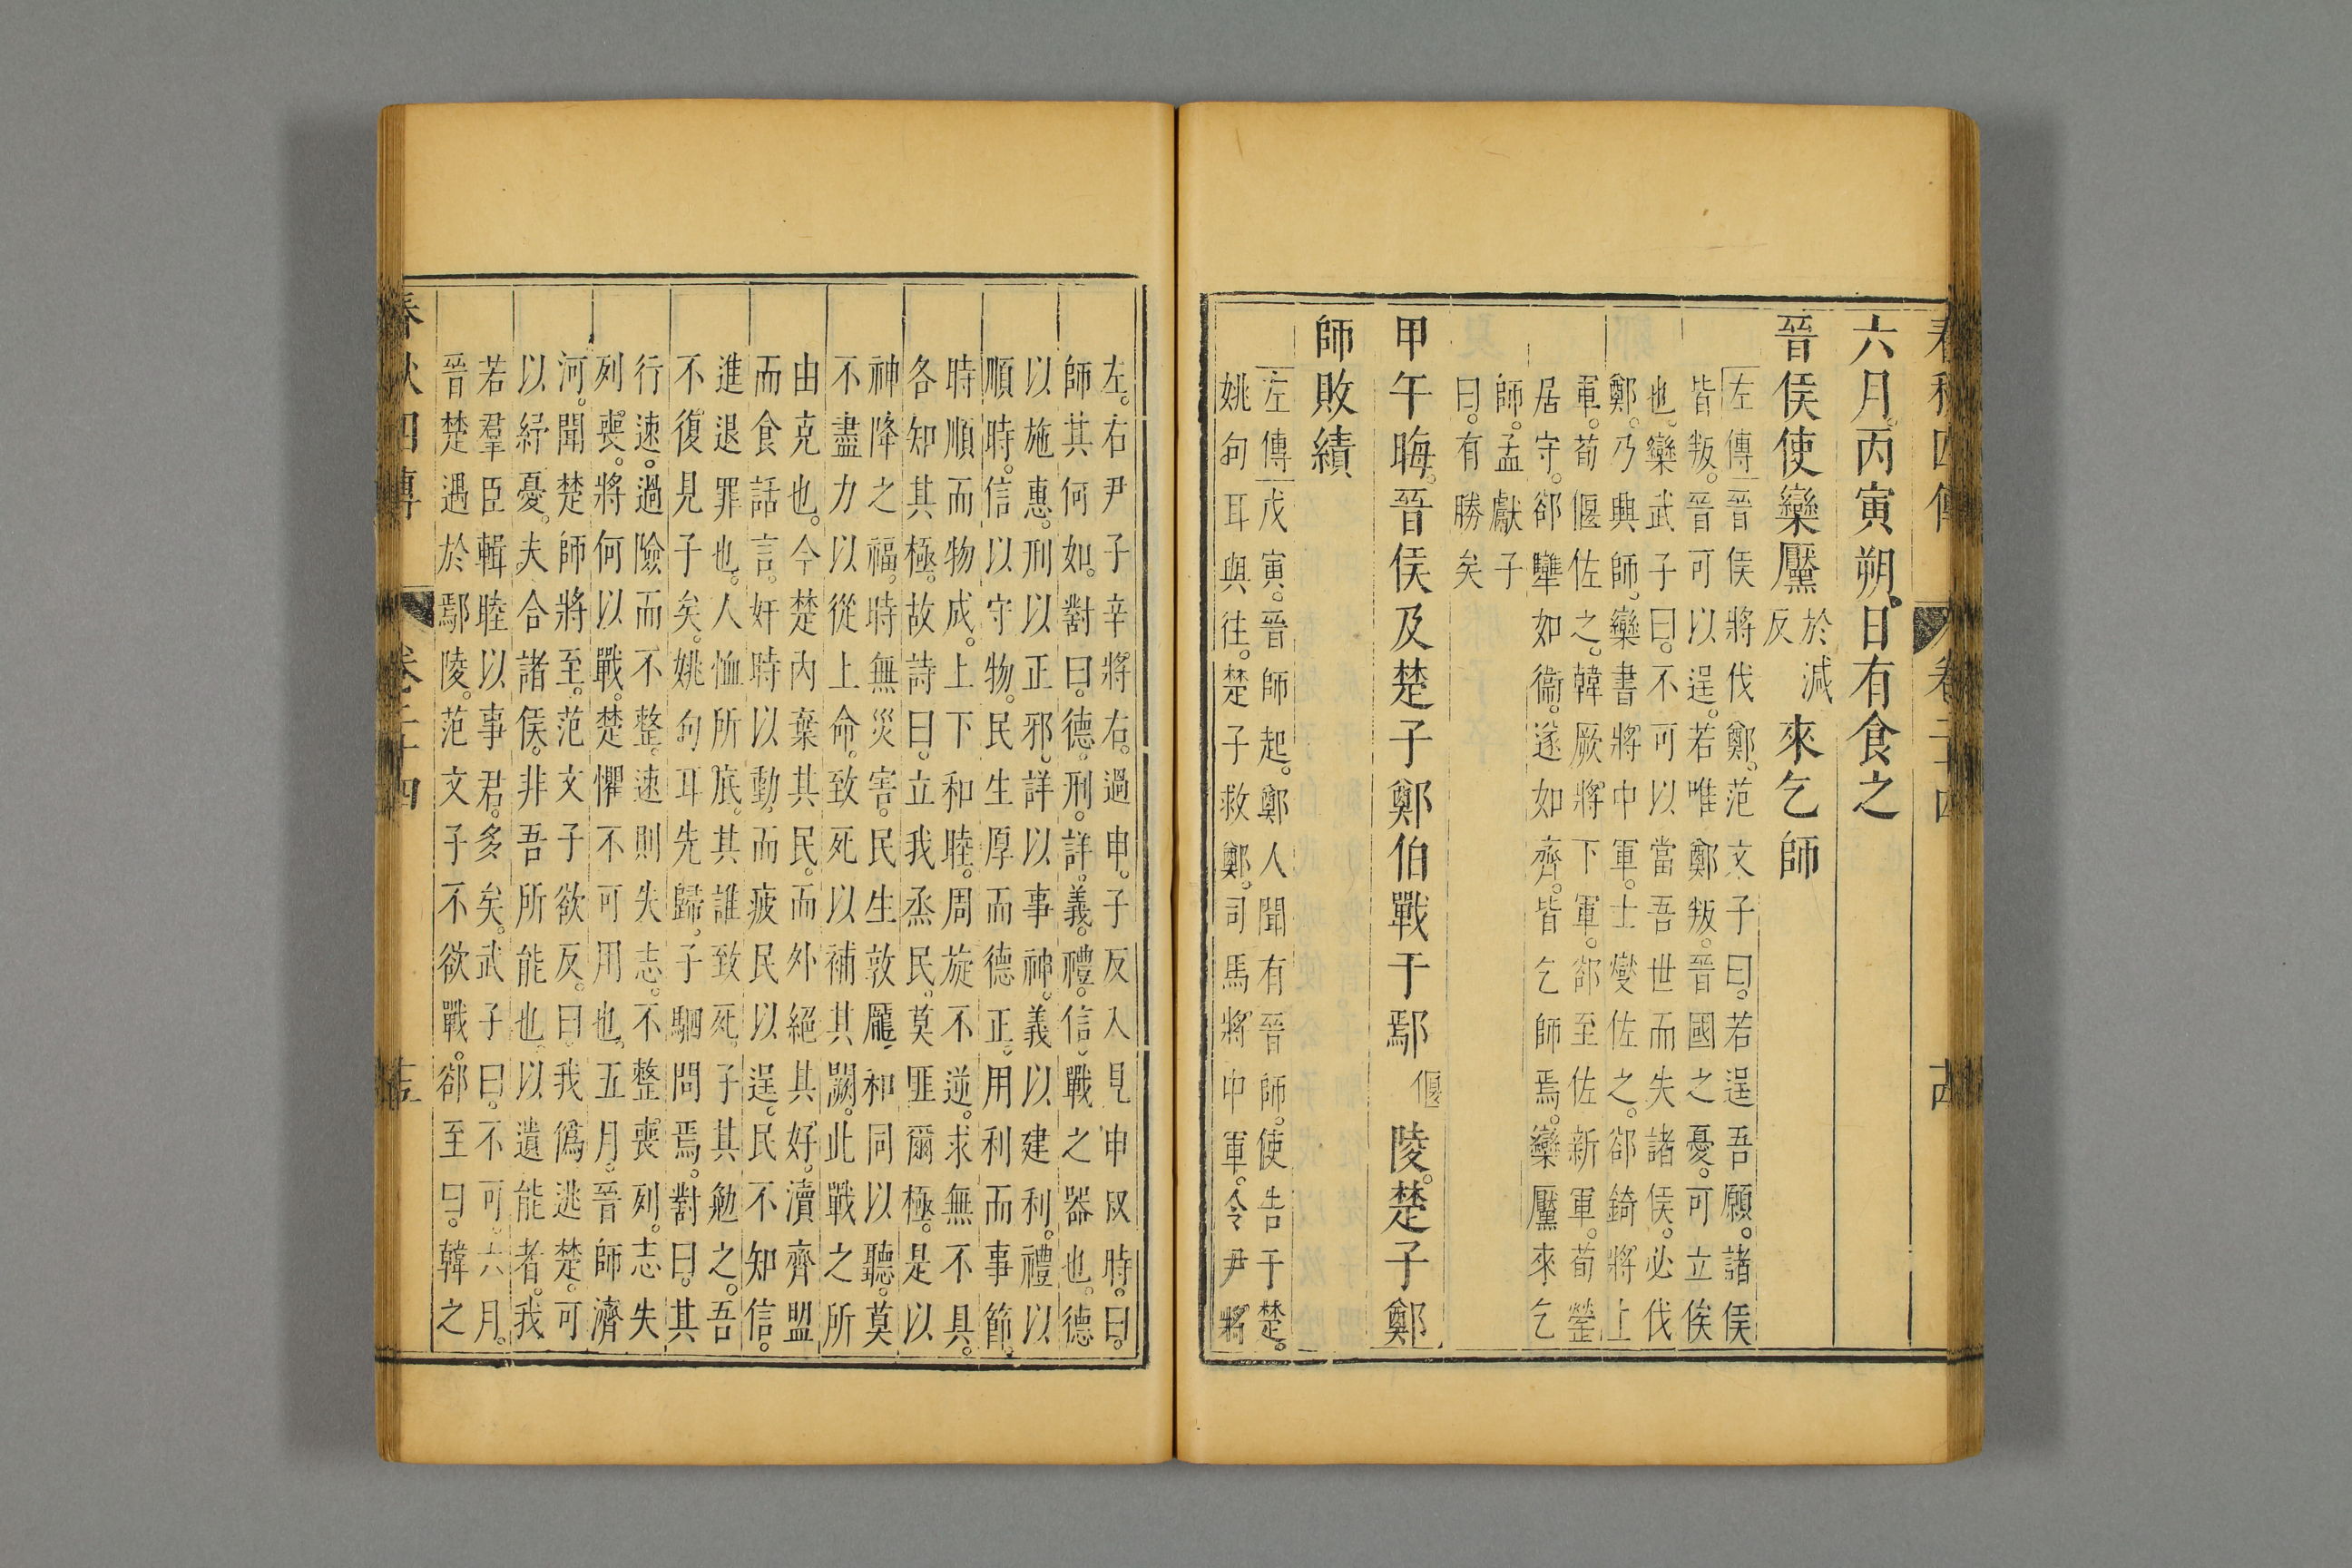 春秋四傳 卷二十四 古
六月。丙寅朔。日有食之
晉侯使欒黶於減反來乞師
左傳晉侯將伐鄭。范文子曰。若逞吾願。諸侯
皆叛。晉可以逞。若唯鄭叛。晉國之憂。可立俟
也。欒武子曰。不可以當吾世而失諸侯。必伐
鄭。乃興師。欒書將中軍。士燮佐之。郤錡將上
軍。荀偃佐之。韓厥將下軍。郤至佐新軍。荀罃
居守。郤犨如衞。遂如齊。皆乞師焉。欒黶來乞
師。孟獻子
曰。有勝矣
甲午晦。晉侯及楚子鄭伯戰于鄢偃陵。楚子鄭
師敗績
左傳戊寅。晉師起。鄭人聞有晉師。使告于楚。
姚句耳與往。楚子救鄭。司馬將中軍。令尹將
左。右尹子辛將右。過申。子反入見申叔時。曰。
師其何如。對曰。德。刑。詳。義。禮。信。戰之器也。德
以施惠。刑以正邪。詳以事神。義以建利。禮以
順時。信以守物。民生厚而德正。用利而事節。
時順而物成。上下和睦。周旋不逆。求無不具。
各知其極。故詩曰。立我烝民。莫匪爾極。是以
神降之福。時無災害。民生敦厖。和同以聽。莫
不盡力以從上命。致死以補其闕。此戰之所
由克也。今楚内棄其民。而外絕其好。瀆齊盟
而食話言。奸時以動。而疲民以逞。民不知信。
進退罪也。人恤所底。其誰致死。子其勉之。吾
不復見子矣。姚句耳先歸。子駟問焉。對曰。其
行速。過險而不整。速則失志。不整喪列。志失
列喪。將何以戰。楚懼不可用也。五月。晉師濟
河。聞楚師將至。范文子欲反。曰。我僞逃楚。可
以紓憂。夫合諸侯。非吾所能也。以遺能者。我
若羣臣輯睦以事君。多矣。武子曰。不可。六月。
晉楚遇於鄢陵。范文子不欲戰。郤至曰。韓之
春秋四傳 卷二十四